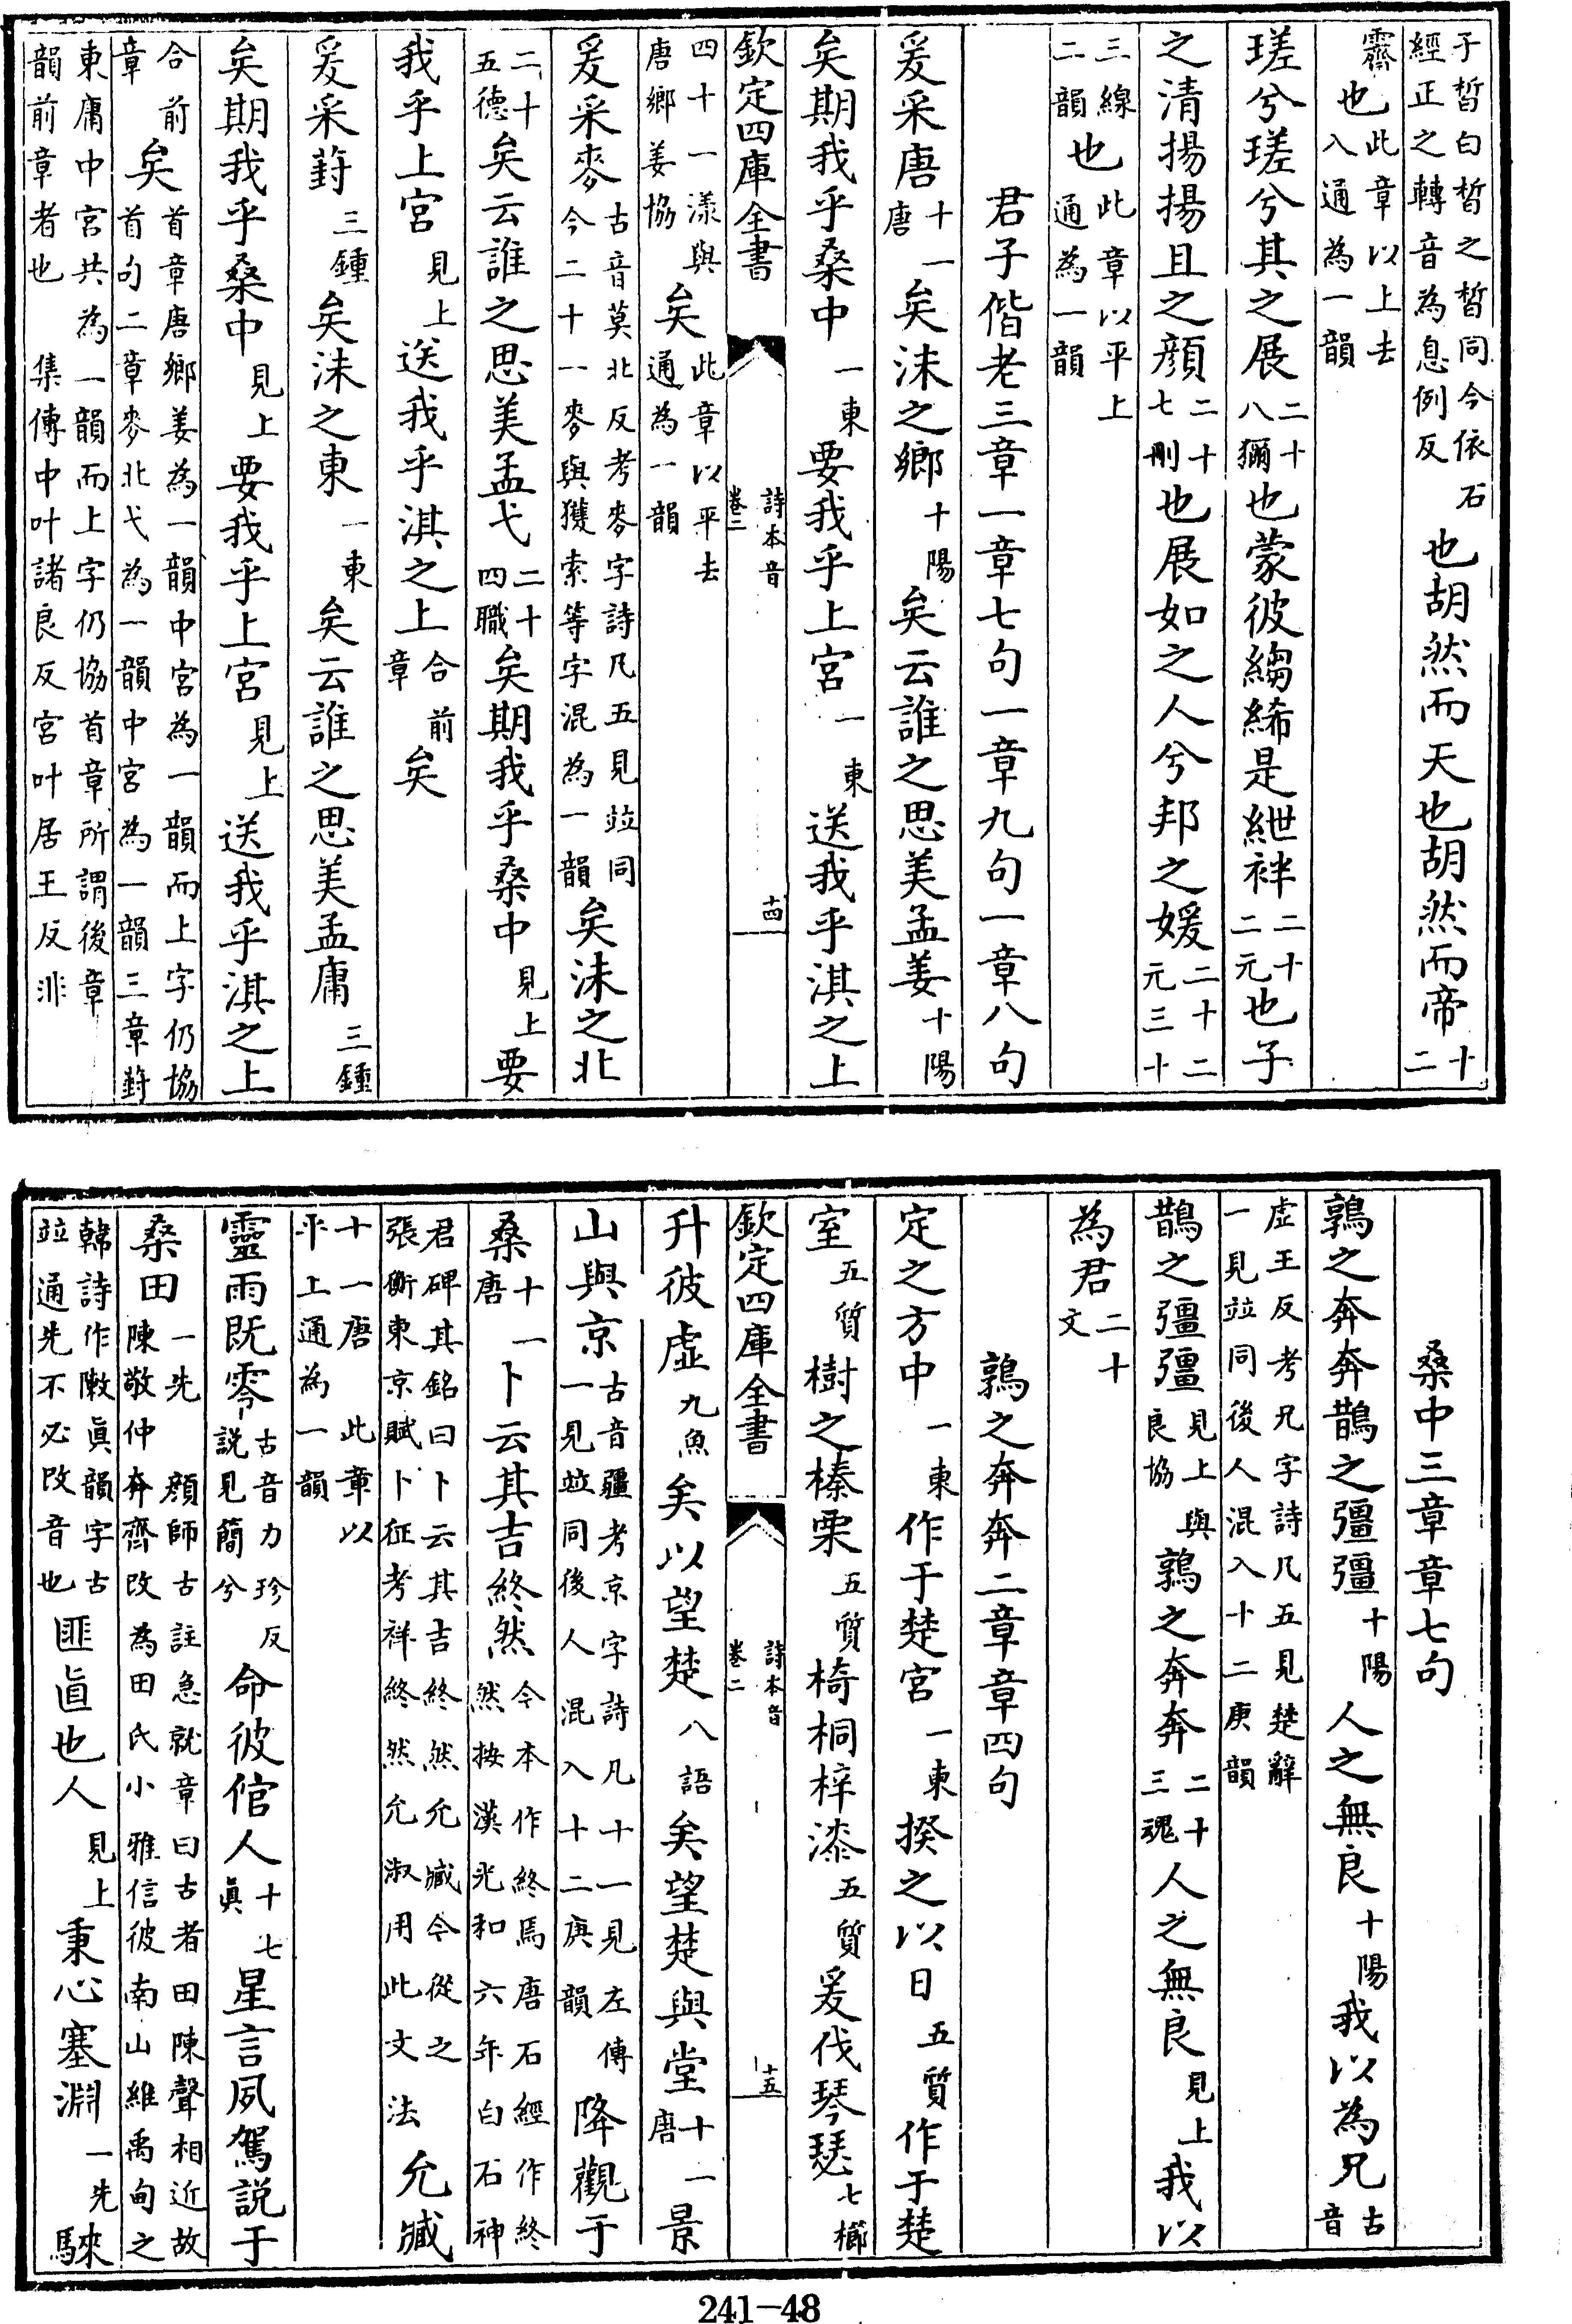 子晳白晳之晳同今依石經正之轉音為息例反也胡然而天也胡然而帝十二
霽也此章以上去入通為一韻
瑳兮瑳兮其之展二十八獮也蒙彼縐絺是紲袢二十二元也子
之清揚揚且之顔二十七刪也展如之人兮邦之媛二十二元三十
三線二韻也此章以平上通為一韻
君子偕老三章一章七句一章九句一章八句
爰采唐十一唐矣沬之鄉十陽矣云誰之思美孟姜十陽
矣期我乎桑中一東要我乎上宮一東送我乎淇之上
欽定四庫全書
詩本音
卷二
十四
四十一漾與唐鄉姜協矣此章以平去通為一韻
爰采麥古音莫北反考麥字詩凡五見竝同今二十一麥與獲索等字混為一韻矣沬之北
二十五德矣云誰之思美孟弋二十四職矣期我乎桑中見上要
我乎上宮見上送我乎淇之上合前章矣
爰采葑三鍾矣沬之東一東矣云誰之思美孟庸三鍾
矣期我乎桑中見上要我乎上宮見上送我乎淇之上
合前章矣首章唐鄉姜為一韻中宮為一韻而上字仍協首句二章麥北弋為一韻中宮為一韻三章葑
東庸中宮共為一韻而上字仍協首章所謂後章韻前章者也 集傳中叶諸良反宮叶居王反非
桑中三章章七句
鶉之奔奔鵲之彊彊十陽人之無良十陽我以為兄古音
虛王反考兄字詩凡五見楚辭一見竝同後人混入十二庚韻
鵲之彊彊見上與良協鶉之奔奔二十三魂人之無良見上我以
為君二十文
鶉之奔奔二章章四句
定之方中一東作于楚宮一東揆之以日五質作于楚
室五質樹之榛栗五質椅桐梓漆五質爰伐琴瑟七櫛
欽定四庫全書
詩本音
卷二
十五
升彼虛九魚矣以望楚八語矣望楚與堂十一唐景
山與京古音疆考京字詩凡十一見左傳一見竝同後人混入十二庚韻降觀于
桑十一唐卜云其吉終然今本作終焉唐石經作終然按漢光和六年白石神
君碑其銘曰卜云其吉終然允臧今從之張衡東京賦卜征考祥終然允淑用此文法允臧
十一唐 此章以平上通為一韻
靈雨既零古音力珍反說見簡兮命彼倌人十七眞星言夙駕說于
桑田一先 顔師古註急就章曰古者田陳聲相近故陳敬仲奔齊改為田氏小雅信彼南山維禹甸之
韓詩作敶眞韻字古竝通先不必改音也匪直也人見上秉心塞淵一先騋
241-48